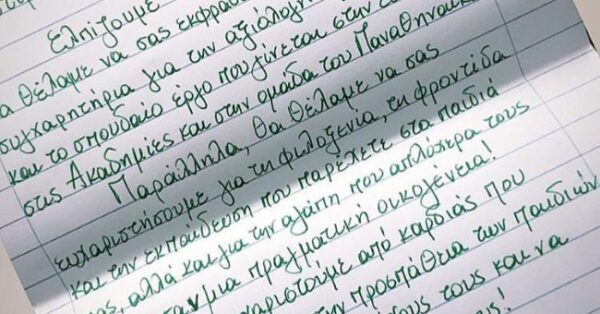 Ελπίζουμε
θα θέλαμε να σας εκφράσ
συγχαρητήρια για την αξιόλογη
και το σπουδαίο έργο που γίνεται στην
στις Ακαδημίες και στην ομάδα του Παναθηναϊκ
Παράλληλα, θα θέλαμε να σας
ευχαριστήσουμε για τη φιλοξενία, τη φροντίδα
και την εκπαίδευση που παρέχετε στα παιδιά
μας, αλλά και για την αγάπη που απλόχερα τους
σαν μια πραγματική οικογένεια!
χαριστούμε από καρδιάς που
την προσπάθεια των παιδιών
ους τους και να
ς!